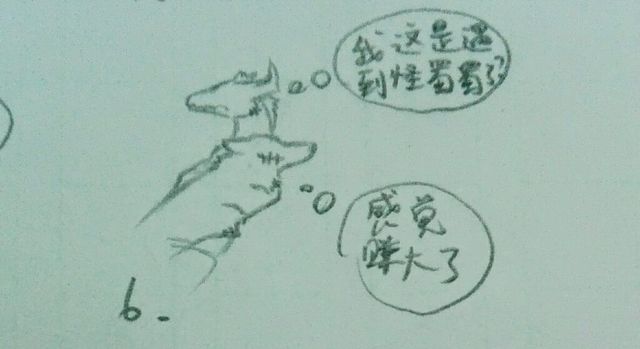 我这是遇
到怪蜀蜀了?
感觉
赚大了
6.